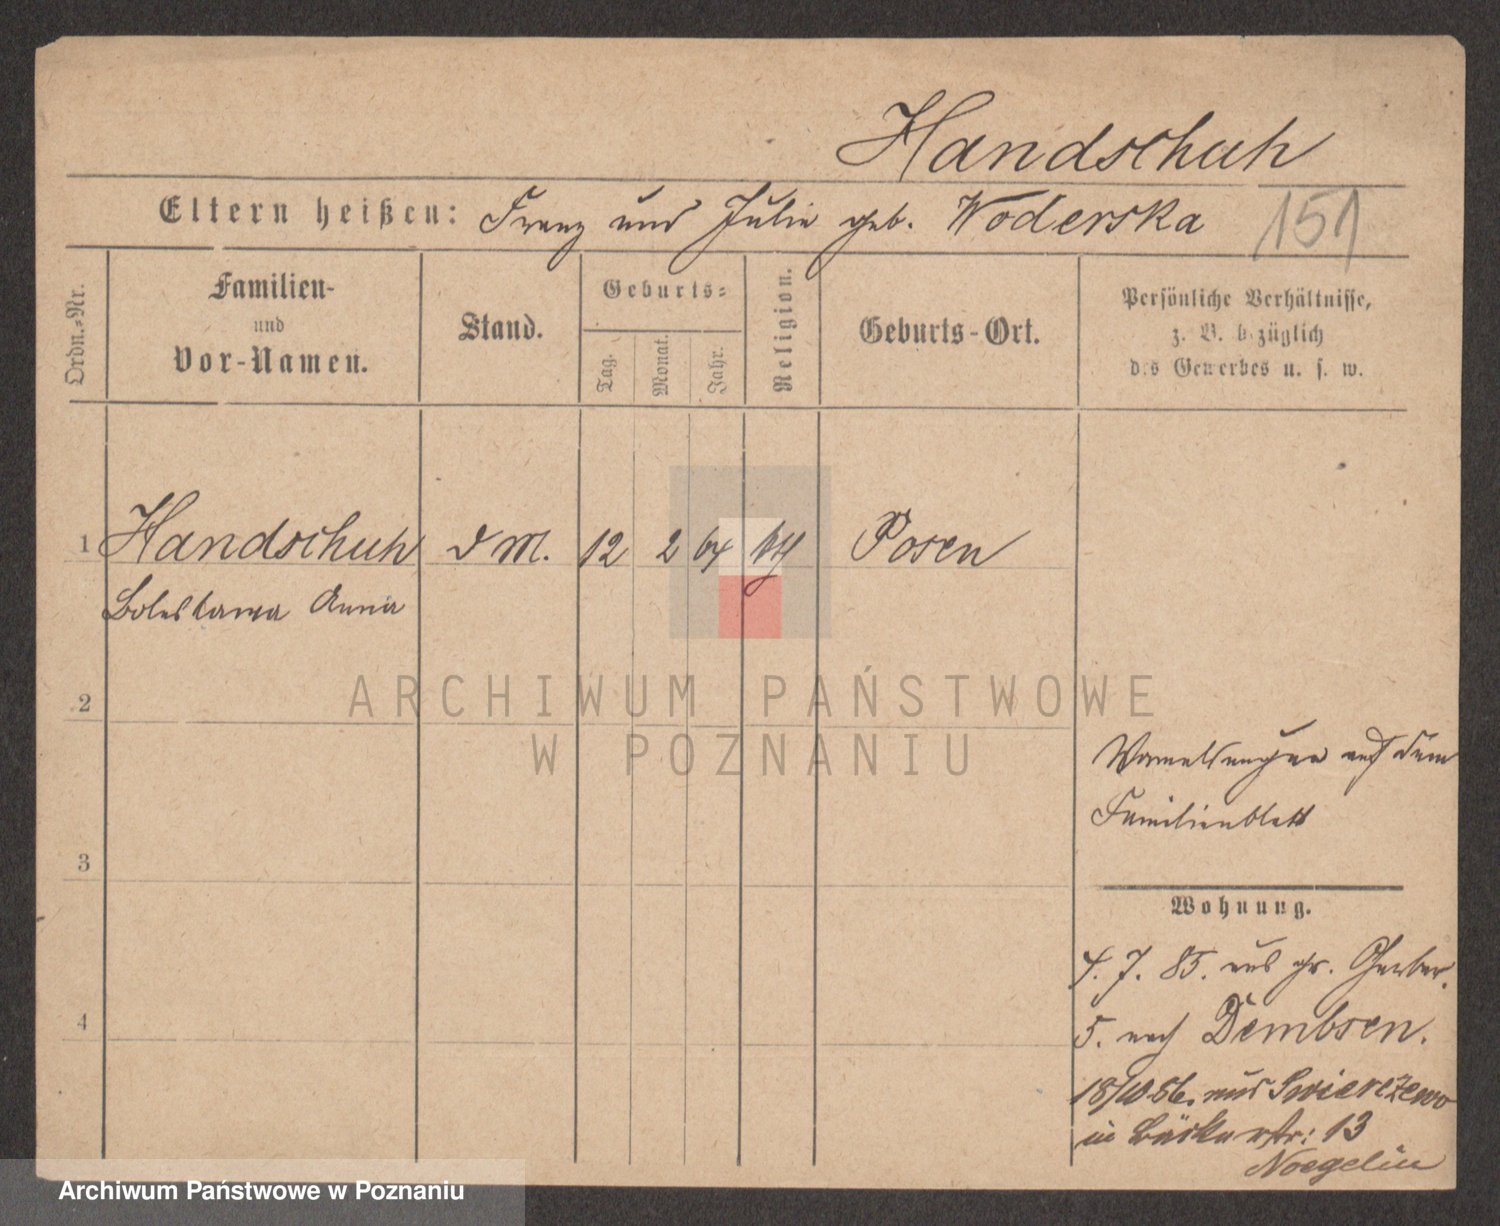 Handschuh
Eltern heißen: Franz und Julie geb. Woderska
151
Ordn.-Nr.
Familien-
und
Vor-Namen.
Stand.
Geburts-
Tag.
Monat.
Jahr.
Religion.
Geburts-Ort.
Persönliche Verhältnisse,
z. B. bezüglich
des Gewerbes u. s. w.
1 Handschuh d M. 12 2 64 kth Posen
Boleslawa Anna
2
3
4
ARCHIWUM PAŃSTWOWE
W POZNANIU
auf dem
Familienblatt
Wohnung.
4. 7. 85. aus gr. Gerber.
5. nach Dembsen.
18/10 86. aus Swierczewo
in Bäckerstr: 13
Archiwum Państwowe w Poznaniu